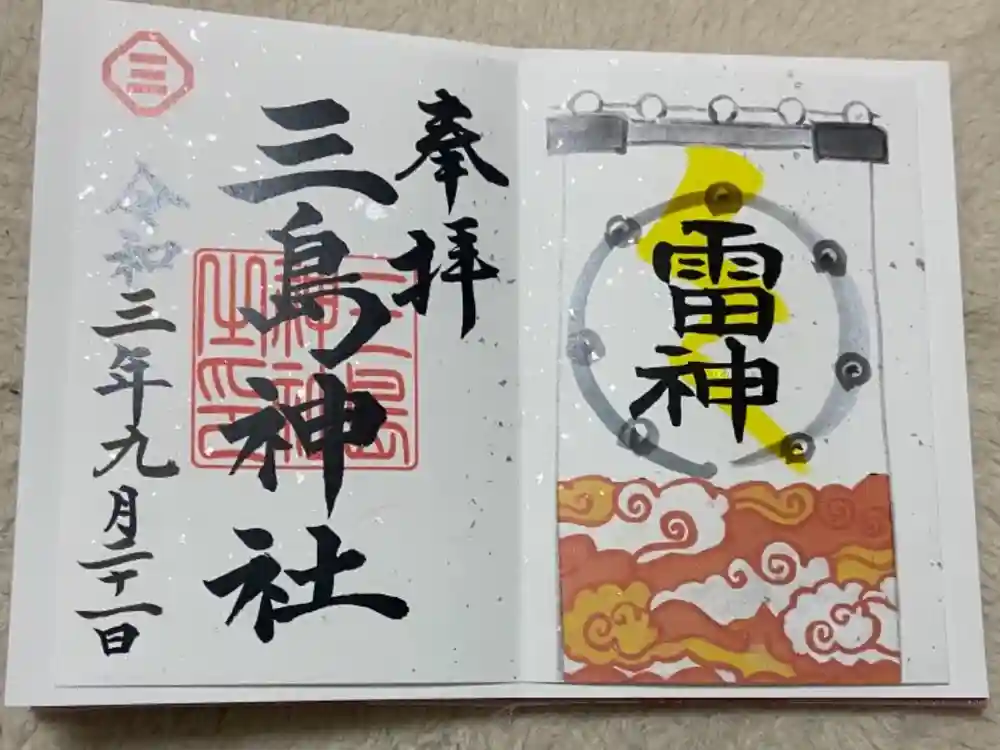 雷神
奉拝
三島神社
令和三年九月二十一日
三
三島神社之印